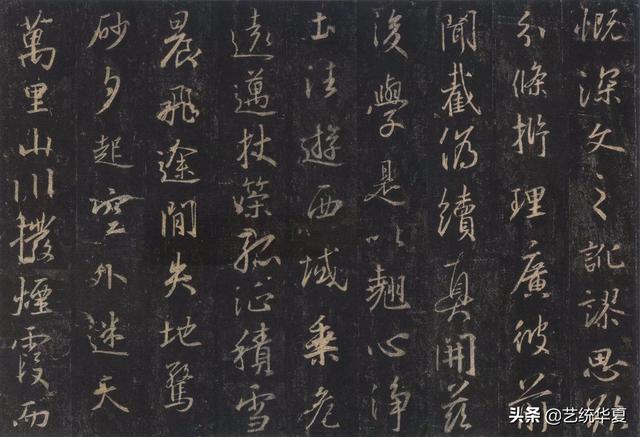 慨深文之訛謬思欲
分條析理廣彼前
聞截偽續真開茲
後學是以翹心淨
土法遊西域乘危
遠邁杖策孤征積雪
晨飛途間失地驚
砂夕起空外迷天
萬里山川撥煙霞而
头条 @艺统华夏